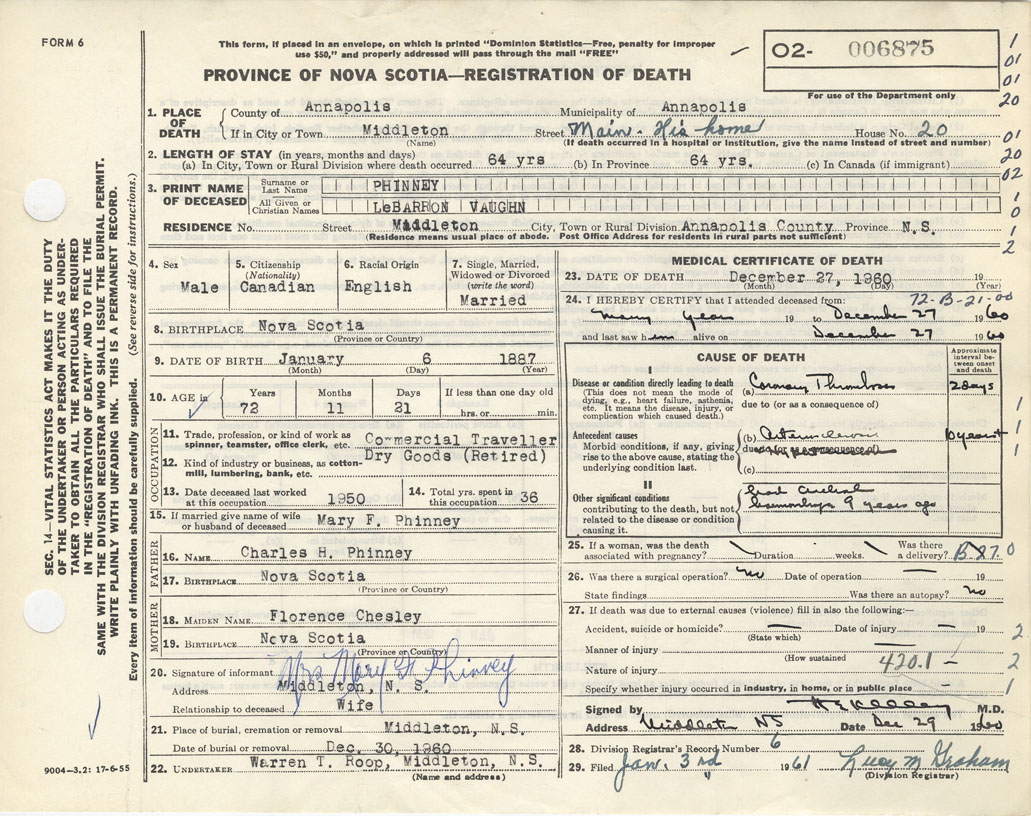 FORM 6
This form, if placed in an envelope, on which is printed "Dominion Statistics—Free, penalty for improper
use $50," and properly addressed will pass through the mail "FREE"
02- 006875
For use of the Department only
PROVINCE OF NOVA SCOTIA—REGISTRATION OF DEATH
1
01
01
20
01
20
02
1
0
1
2
1. PLACE OF DEATH
County of Annapolis Municipality of Annapolis
If in City or Town Middleton Street Main - His home House No. 20
(Name) (If death occurred in a hospital or institution, give the name instead of street and number)
2. LENGTH OF STAY (in years, months and days)
(a) In City, Town or Rural Division where death occurred 64 yrs (b) In Province 64 yrs. (c) In Canada (if immigrant)
3. PRINT NAME OF DECEASED
Surname or Last Name PHINNEY
All Given or Christian Names LeBARRON VAUGHN
RESIDENCE No. Street Middleton City, Town or Rural Division Annapolis County Province N.S.
(Residence means usual place of abode. Post Office Address for residents in rural parts not sufficient)
4. Sex
Male
5. Citizenship
(Nationality)
Canadian
6. Racial Origin
English
7. Single, Married,
Widowed or Divorced
(write the word)
Married
8. BIRTHPLACE Nova Scotia
(Province or Country)
9. DATE OF BIRTH January 6 1887
(Month) (Day) (Year)
10. AGE in
Years Months Days If less than one day old
72 11 21 hrs. or min.
OCCUPATION
11. Trade, profession, or kind of work as
spinner, teamster, office clerk, etc. Commercial Traveller
12. Kind of industry or business, as cotton-
mill, lumbering, bank, etc. Dry Goods (Retired)
13. Date deceased last worked
at this occupation 1950
14. Total yrs. spent in
this occupation 36
15. If married give name of wife
or husband of deceased Mary F. Phinney
FATHER
16. NAME Charles H. Phinney
17. BIRTHPLACE Nova Scotia
(Province or Country)
MOTHER
18. MAIDEN NAME Florence Chesley
19. BIRTHPLACE Nova Scotia
(Province or Country)
20. Signature of informant Mrs Mary F Phinney
Address Middleton, N. S.
Relationship to deceased Wife
21. Place of burial, cremation or removal Middleton, N.S.
Date of burial or removal Dec. 30, 1960
22. UNDERTAKER Warren T. Roop, Middleton, N.S.
(Name and address)
MEDICAL CERTIFICATE OF DEATH
23. DATE OF DEATH December 27, 1960 19
(Month) (Day) (Year)
24. I HEREBY CERTIFY that I attended deceased from: 72-B-21-00
Many years 19 to December 27 1960
and last saw him alive on December 27 1960
CAUSE OF DEATH
Approximate
interval be-
tween onset
and death
I
Disease or condition directly leading to death
(This does not mean the mode of
dying, e.g., heart failure, asthenia,
etc. It means the disease, injury, or
complication which caused death.)
(a) Coronary Thrombosis 2 days
due to (or as a consequence of)
Antecedent causes
Morbid conditions, if any, giving
rise to the above cause, stating the
underlying condition last.
(b) 10 years+
due to (or as a consequence of)
(c)
II
Other significant conditions
contributing to the death, but not
related to the disease or condition
causing it.
haemorrhage 9 years ago
1
1
1
25. If a woman, was the death
associated with pregnancy? Duration weeks. Was there
a delivery? B-87.0
26. Was there a surgical operation? no Date of operation 19
State findings Was there an autopsy? no
27. If death was due to external causes (violence) fill in also the following:—
Accident, suicide or homicide? Date of injury 19 2
(State which)
Manner of injury
(How sustained
Nature of injury 420.1 — 2
Specify whether injury occurred in industry, in home, or in public place 1
Signed by M.D.
Address Middleton NS Date Dec 29 1960
28. Division Registrar's Record Number 6
29. Filed Jan. 3rd 1961 Lucy M Graham
(Division Registrar)
SEC. 14—VITAL STATISTICS ACT MAKES IT THE DUTY
OF THE UNDERTAKER OR PERSON ACTING AS UNDER-
TAKER TO OBTAIN ALL THE PARTICULARS REQUIRED
IN THE "REGISTRATION OF DEATH" AND TO FILE THE
SAME WITH THE DIVISION REGISTRAR WHO SHALL ISSUE THE BURIAL PERMIT.
WRITE PLAINLY WITH UNFADING INK. THIS IS A PERMANENT RECORD.
Every item of information should be carefully supplied. (See reverse side for instructions.)
9004—3.2: 17-6-55